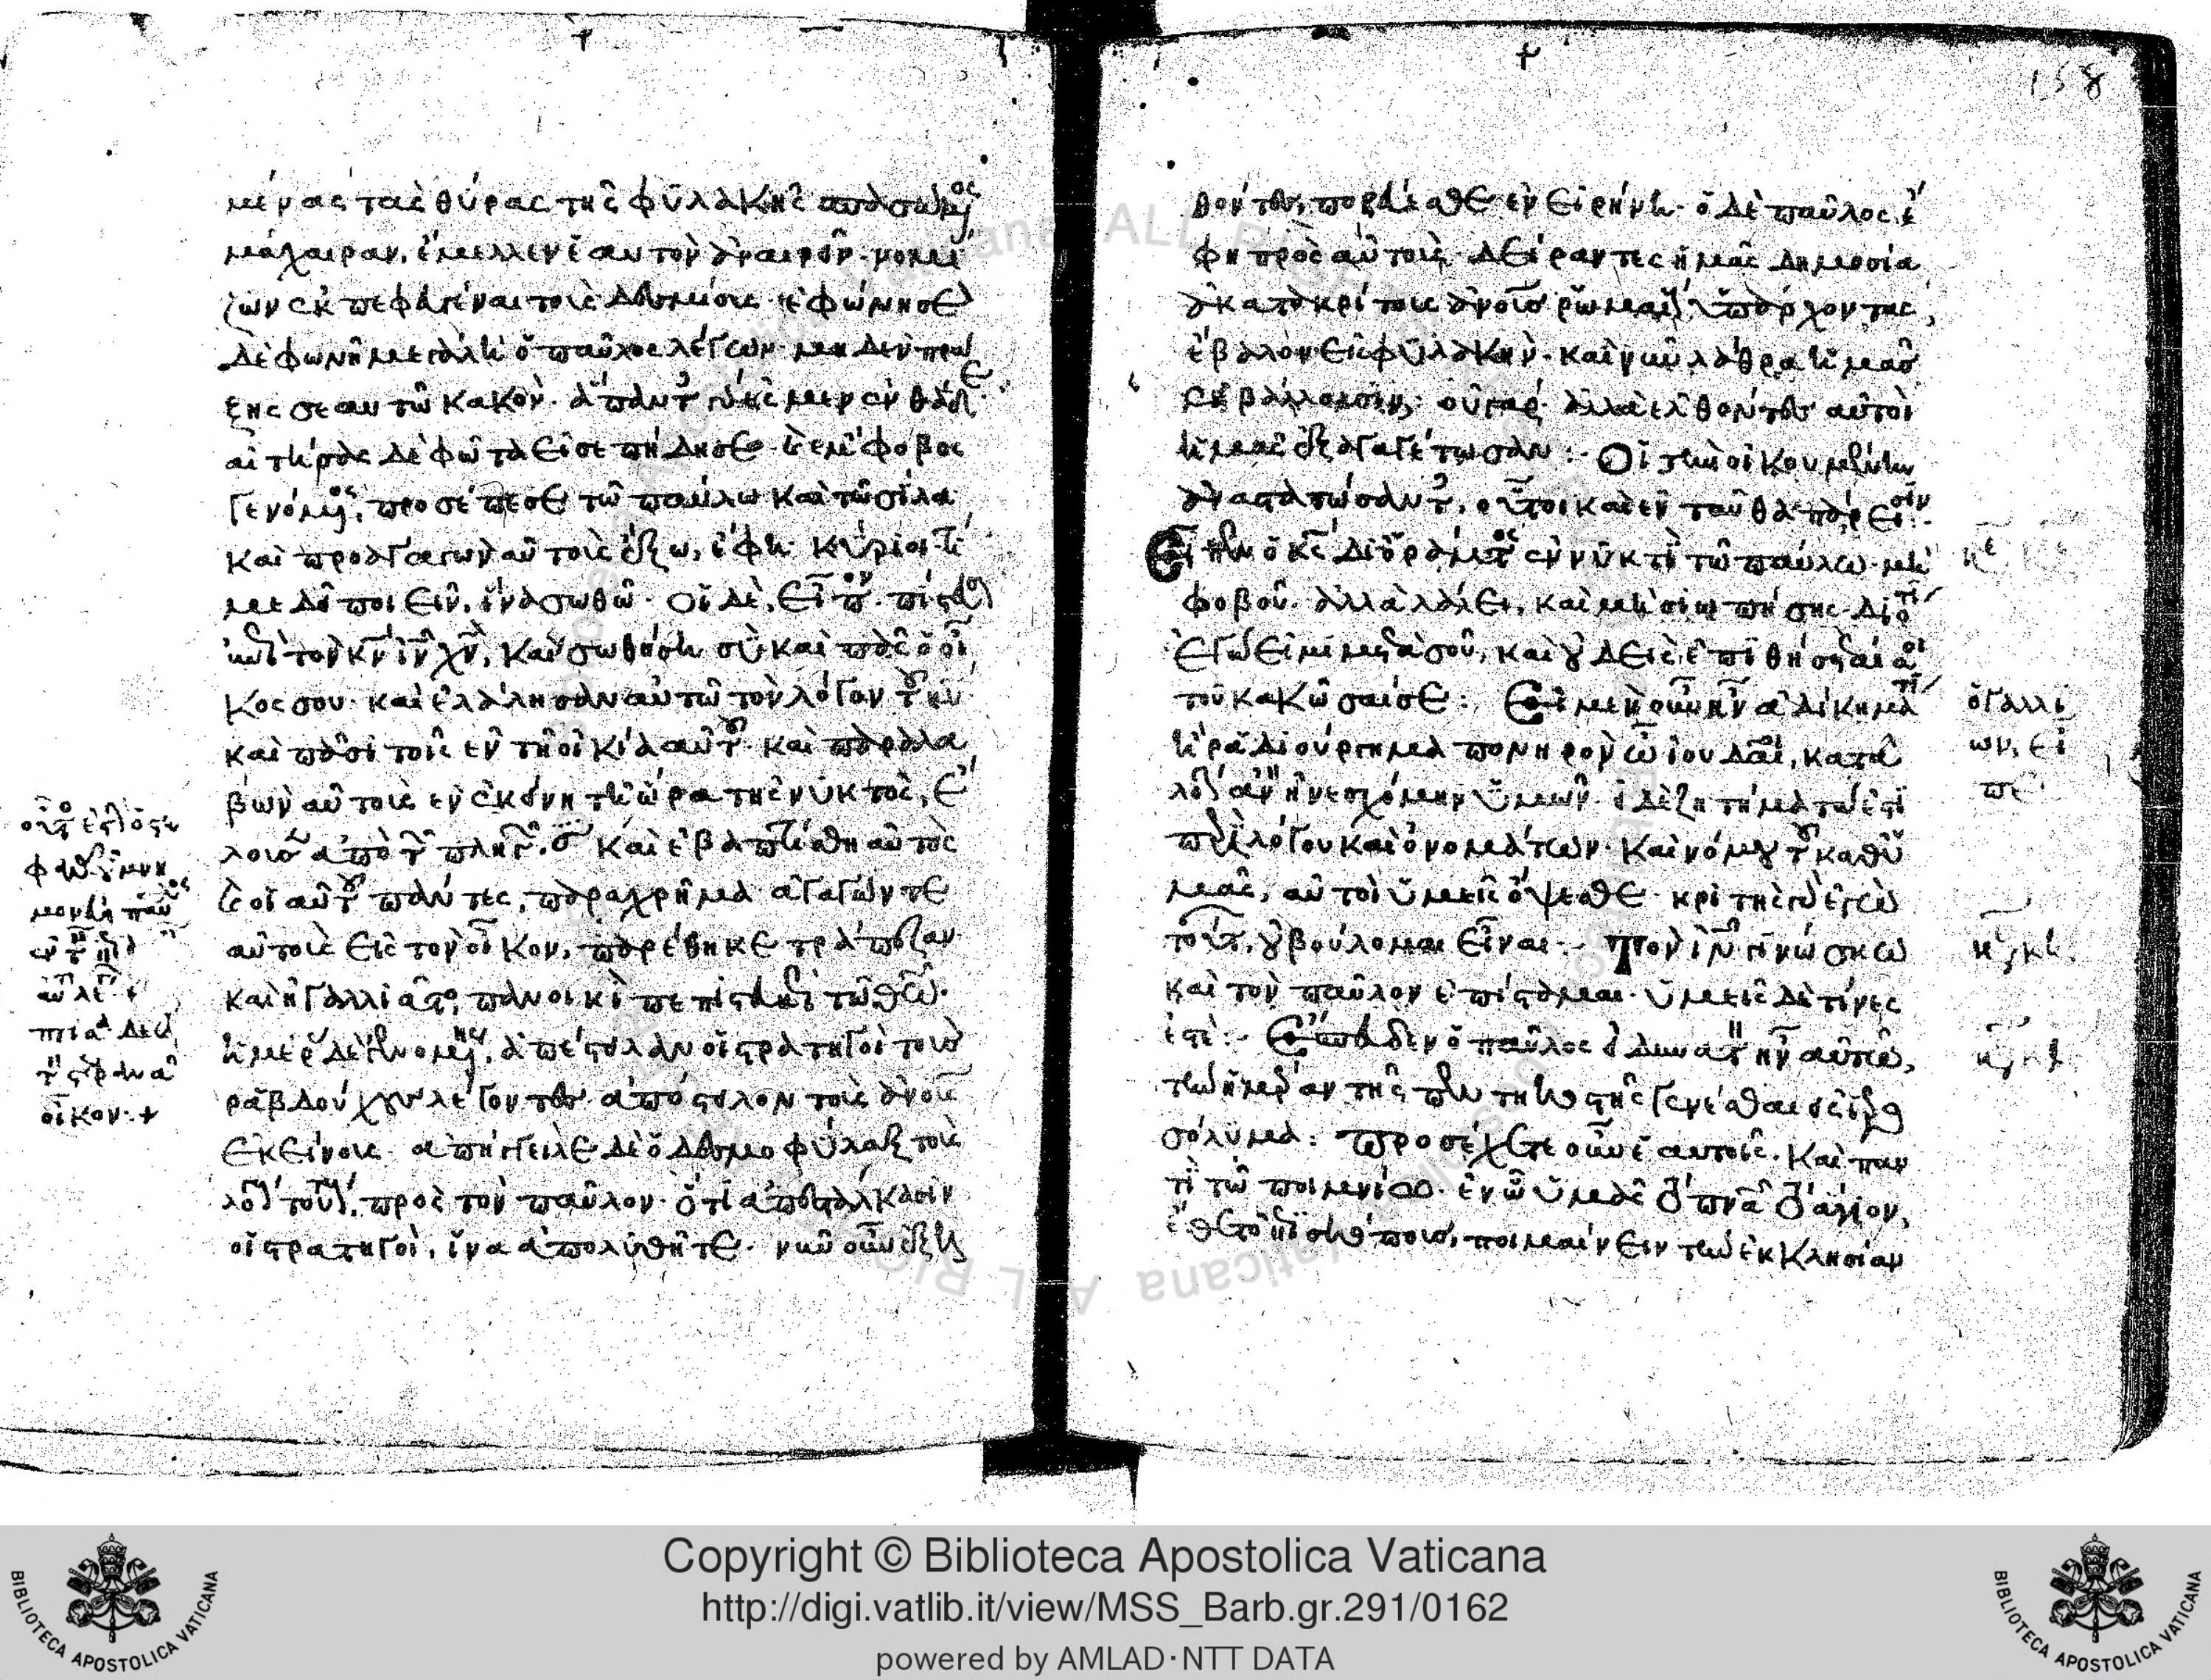 μένας τὰς θύρας τῆς φυλακῆς σπασάμενος
μάχαιραν, ἔμελλεν ἑαυτὸν ἀναιρεῖν· νομί
ζων ἐκπεφευγέναι τοὺς δεσμίους· ἐφώνησε
δὲ φωνῇ μεγάλῃ ὁ παῦλος λέγων· μηδὲν πρά
ξης σεαυτῶ κακόν· ἅπαντες γάρ ἐσμεν ἐνθάδε
δὲ φῶτα εἰσεπήδησε· φοβος
γενόμενος, προσέπεσε τῶ παύλω καὶ τῶ σίλα
καὶ προαγαγὼν αὐτοὺς ἔξω, ἔφη· κύριοι τί
με δεῖ ποιεῖν, ἵνα σωθῶ· οἱ δὲ, εἶπον· πίστευσον
ἐπὶ τὸν κν ιν χν, καὶ σωθήση σὺ καὶ πᾶς ὁ οἶ
κος σου· καὶ ἐλάλησαν αὐτῶ τὸν λόγον τοῦ κυ
καὶ πᾶσι τοῖς ἐν τῆ οἰκία αὐτοῦ· καὶ παραλα
βὼν αὐτοὺς ἐν ἐκείνη τῆ ὥρα τῆς νυκτὸς, ἔ
λουσεν ἀπὸ τῶν πληγῶν· καὶ ἐβαπτίσθη αὐτὸς
καὶ οἱ αὐτοῦ πάντες, παραχρῆμα· ἀγαγών τε
αὐτοὺς εἰς τὸν οἶκον, παρέθηκε τράπεζαν
καὶ ἠγαλλιᾶτο, πανοικὶ πεπιστευκὼς τῶ θεῶ·
ἡμέρας δὲ γενομένης, ἀπέστειλαν οἱ στρατηγοὶ τοὺς
ῥαβδούχους λέγοντες· ἀπόλυσον τοὺς ἀνους
ἐκείνους· ἀπήγγειλε δὲ ὁ δεσμοφύλαξ τοὺς
λόγους τούτους, πρὸς τὸν παῦλον· ὅτι ἀπεστάλκασιν
οἱ στρατηγοὶ, ἵνα ἀπολυθῆτε· νῦν οὖν ἐξελ
οἶκον· +
158
θόντες, πορεύεσθε ἐν εἰρήνη· ὁ δὲ παῦλος ἔ
φη πρὸς αὐτοὺς· δείραντες ἡμᾶς δημοσία
ἀκατακρίτους ἀνους ῥωμαίους ὑπάρχοντας,
ἔβαλον εἰς φυλακήν· καὶ νῦν λάθρα ἡμᾶς
ἐκβάλλουσιν; οὐ γάρ· ἀλλὰ ἐλθόντες αὐτοὶ
ἡμᾶς ἐξαγαγέτωσαν:· Οἱ τὴν οἰκουμένην
ἀναστατώσαντες, οὗτοι καὶ ἐνταῦθα πάρεισιν:·
Εἶπεν ὁ κς δι' ὁράματος ἐν νυκτὶ τῶ παύλω· μὴ
φοβοῦ· ἀλλὰ λάλει, καὶ μὴ σιωπήσης· διότι
ἐγώ εἰμι μετὰ σοῦ, καὶ οὐδεὶς ἐπιθήσεταί σοι
τοῦ κακῶσαί σε: Εἰ μὲν οὖν ἦν ἀδίκημά τι
ἢ ῥαδιούργημα πονηρὸν ὦ ἰουδαῖοι, κατὰ
λόγον ἂν ἠνεσχόμην ὑμῶν· εἰ δὲ ζήτημά ἐστι
περὶ λόγου καὶ ὀνομάτων· καὶ νόμου τοῦ καθ' ὑ
μᾶς, αὐτοὶ ὑμεῖς ὄψεσθε· κριτὴς γὰρ ἐγὼ
τούτων, οὐ βούλομαι εἶναι:· Τὸν ιν γινώσκω
καὶ τὸν παῦλον ἐπίσταμαι· ὑμεῖς δὲ τίνες
ἐστέ:· Ἔσπευδεν ὁ παῦλος εἰ δυνατὸν ἦν αὐτῶ,
τὴν ἡμέραν τῆς πεντηκοστῆς γενέσθαι εἰς ἱερο
σόλυμα: προσέχετε οὖν ἑαυτοῖς· καὶ παν
τὶ τῶ ποιμνίω· ἐν ὧ ὑμᾶς τὸ πνα τὸ ἅγιον,
ἔθετο ἐπισκόπους, ποιμαίνειν τὴν ἐκκλησίαν
ὁ γαλλί
ων, εἶ
πε
Copyright © Biblioteca Apostolica Vaticana
http://digi.vatlib.it/view/MSS_Barb.gr.291/0162
powered by AMLAD·NTT DATA
BIBLIOTECA APOSTOLICA VATICANA
BIBLIOTECA APOSTOLICA VATICANA